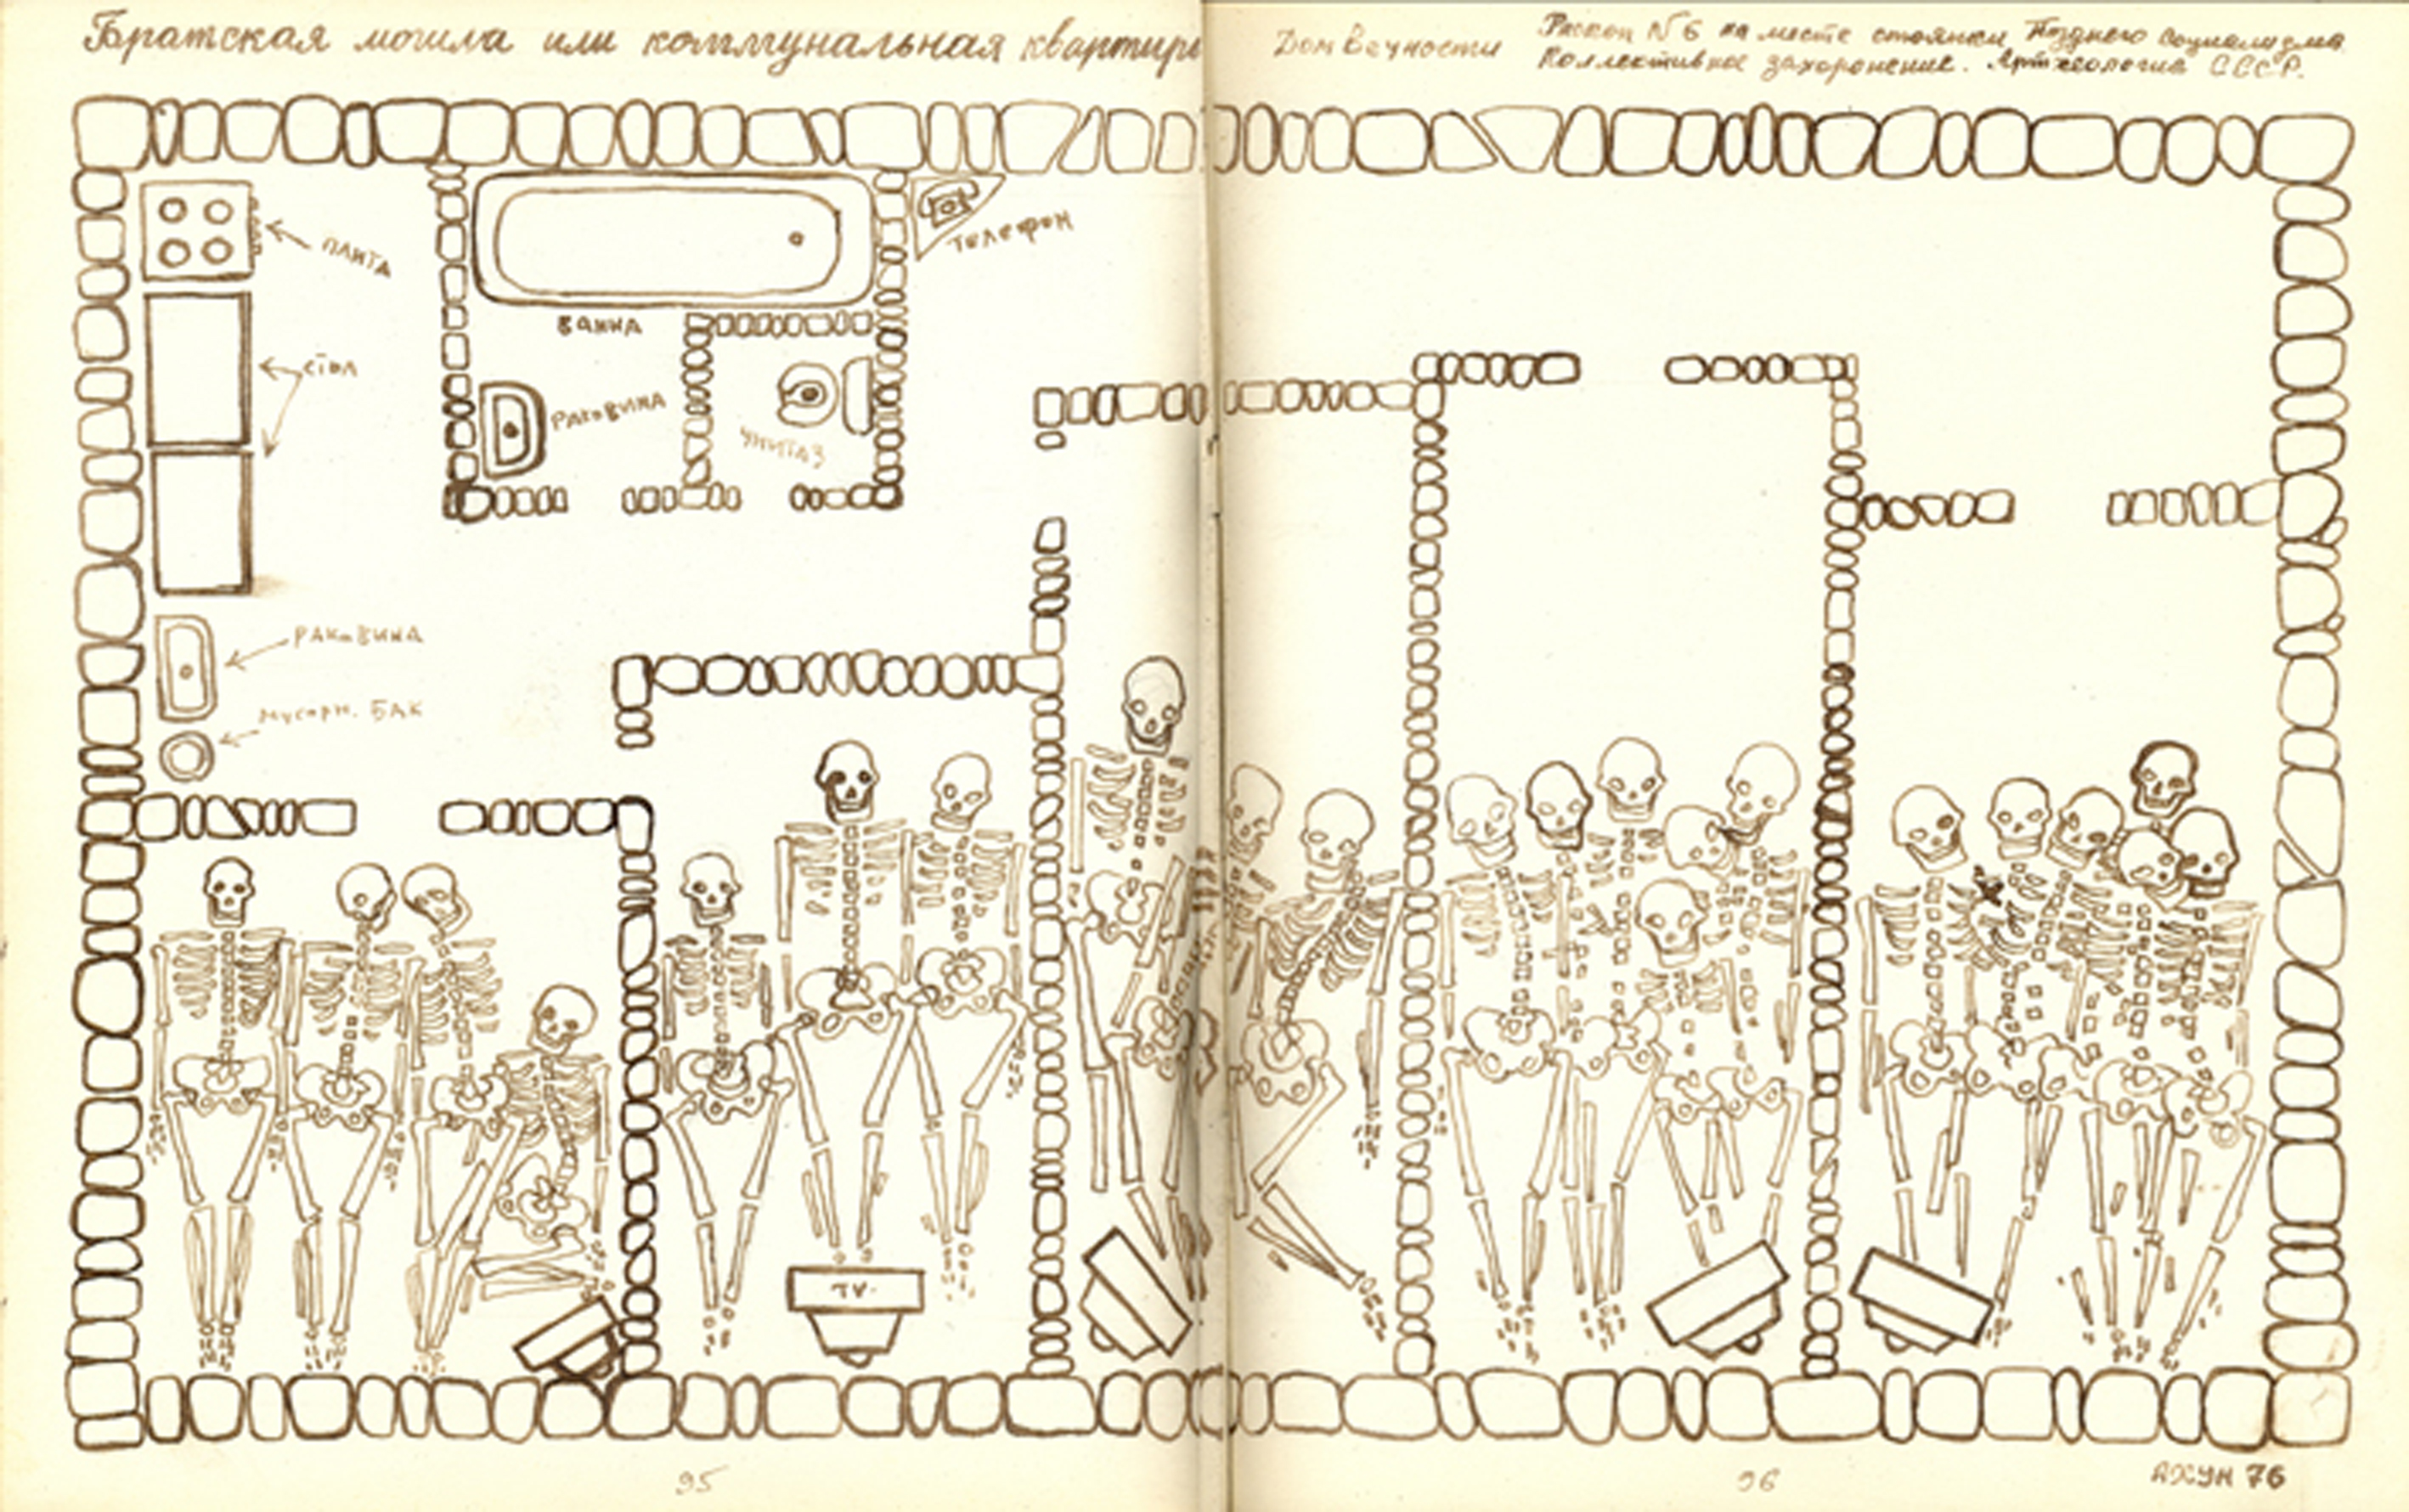 Братская могила или коммунальная квартира
Дом Вечности
Раскоп №6 на месте стоянки Позднего социализма
Коллективное захоронение. Артхеология СССР.
ПЛИТА
СТОЛ
РАКОВИНА
МУСОРН. БАК
ВАННА
РАКОВИНА
УНИТАЗ
ТЕЛЕФОН
TV.
95
96
АХУН 76